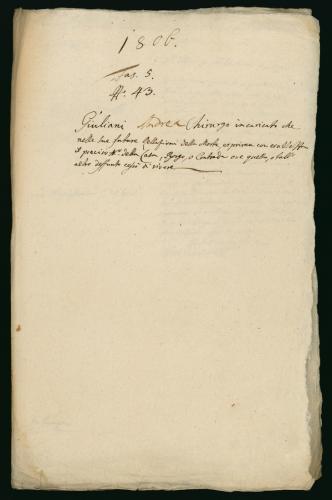 1806.
Fas. 5.
N.º 43.
Giuliani Andrea Chirurgo incaricato che
nelle sue future Relazioni delle Morte, esprima con
il preciso N.º della Casa, Borgo, o Contrada ove questo, o tall
altro deffunto cessò di vivere